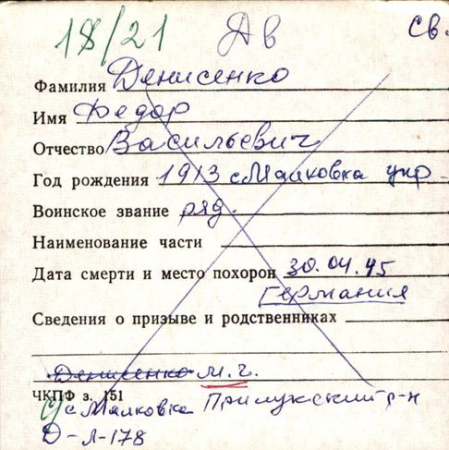 18/21 Дв св.
Фамилия Денисенко
Имя Федор
Отчество Васильевич
Год рождения 1913 с Малковка укр
Воинское звание ряд.
Наименование части
Дата смерти и место похорон 30.04.45
Германия
Сведения о призыве и родственниках
Денисенко М.Г.
ЧКПФ з. 151
с Малковка Прилукский р-н
Д-Л-178